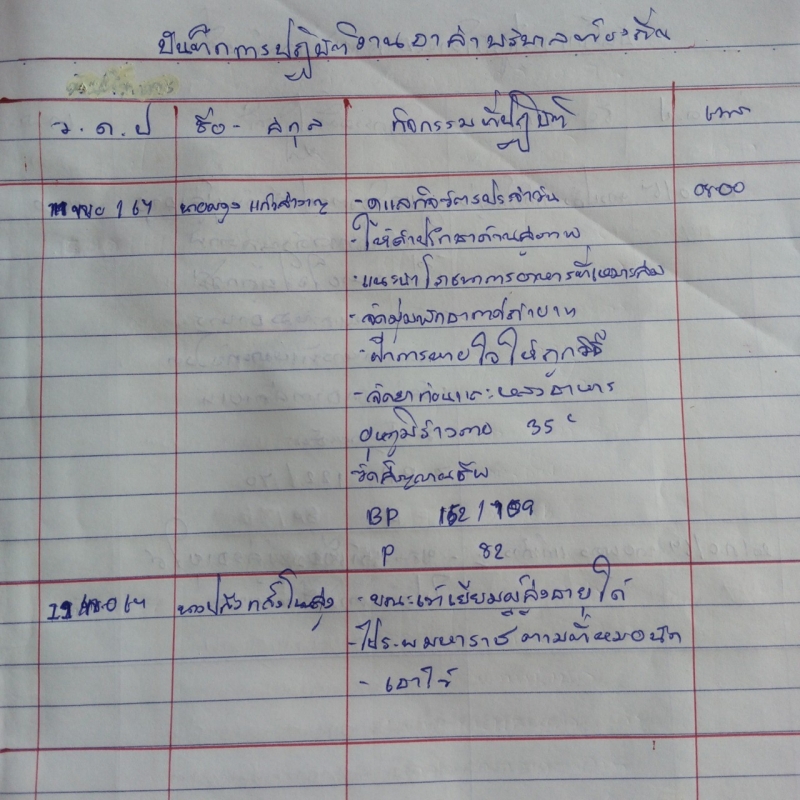 บันทึกการปฏิบัติงานอาสาบริบาลท้องถิ่น
ว.ด.ป ชื่อ - สกุล กิจกรรมที่ปฏิบัติ เวลา
67 แก้วสำราญ - ดูแลกิจวัตรประจำวัน 08.00
- ให้คำปรึกษาด้านสุขภาพ
- แนะนำโภชนาการอาหารที่เหมาะสม
- จัดมุมพักอากาศถ่ายเท
- ฝึกการหายใจให้ถูกวิธี
- จัดยาก่อนและหลังอาหาร
อุณภูมิร่างกาย 35 c
วัดสัญญาณชีพ
BP 162 / 109
P 82
67 - ขณะเข้าเยี่ยมผู้สูงอายุได้
- ไปร.พมหาราชตามที่หมอนัด
- เอาใจ